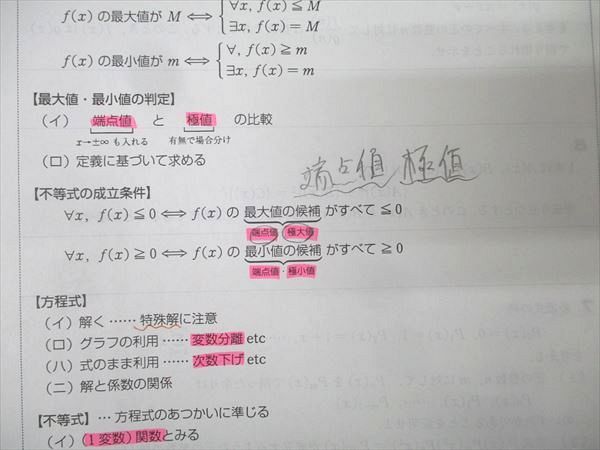 f(x) の最大値が M ⟺ { ∀x, f(x) ≦ M
∃x, f(x) = M
f(x) の最小値が m ⟺ { ∀, f(x) ≧ m
∃x, f(x) = m
【最大値・最小値の判定】
(イ) 端点値 と 極値 の比較
x→±∞ も入れる 有無で場合分け
(ロ) 定義に基づいて求める
端点値 極値
【不等式の成立条件】
∀x, f(x) ≦ 0 ⟺ f(x) の 最大値の候補 がすべて ≦ 0
端点値 極大値
∀x, f(x) ≧ 0 ⟺ f(x) の 最小値の候補 がすべて ≧ 0
端点値・極小値
【方程式】
(イ) 解く …… 特殊解に注意
(ロ) グラフの利用 …… 変数分離 etc
(ハ) 式のまま利用 …… 次数下げ etc
(ニ) 解と係数の関係
【不等式】… 方程式のあつかいに準じる
(イ) (1変数) 関数とみる